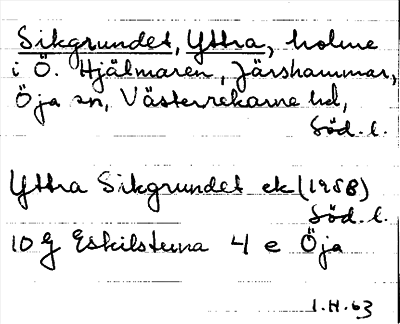 Sikgrundet, Yttra, holme
i Ö. Hjälmaren, Järshammar,
Öja sn, Västerrekarne hd,
Söd. l.
Yttra Sikgrundet ek (1958)
Söd. l.
10 G Eskilstuna 4 e Öja
1.H.63